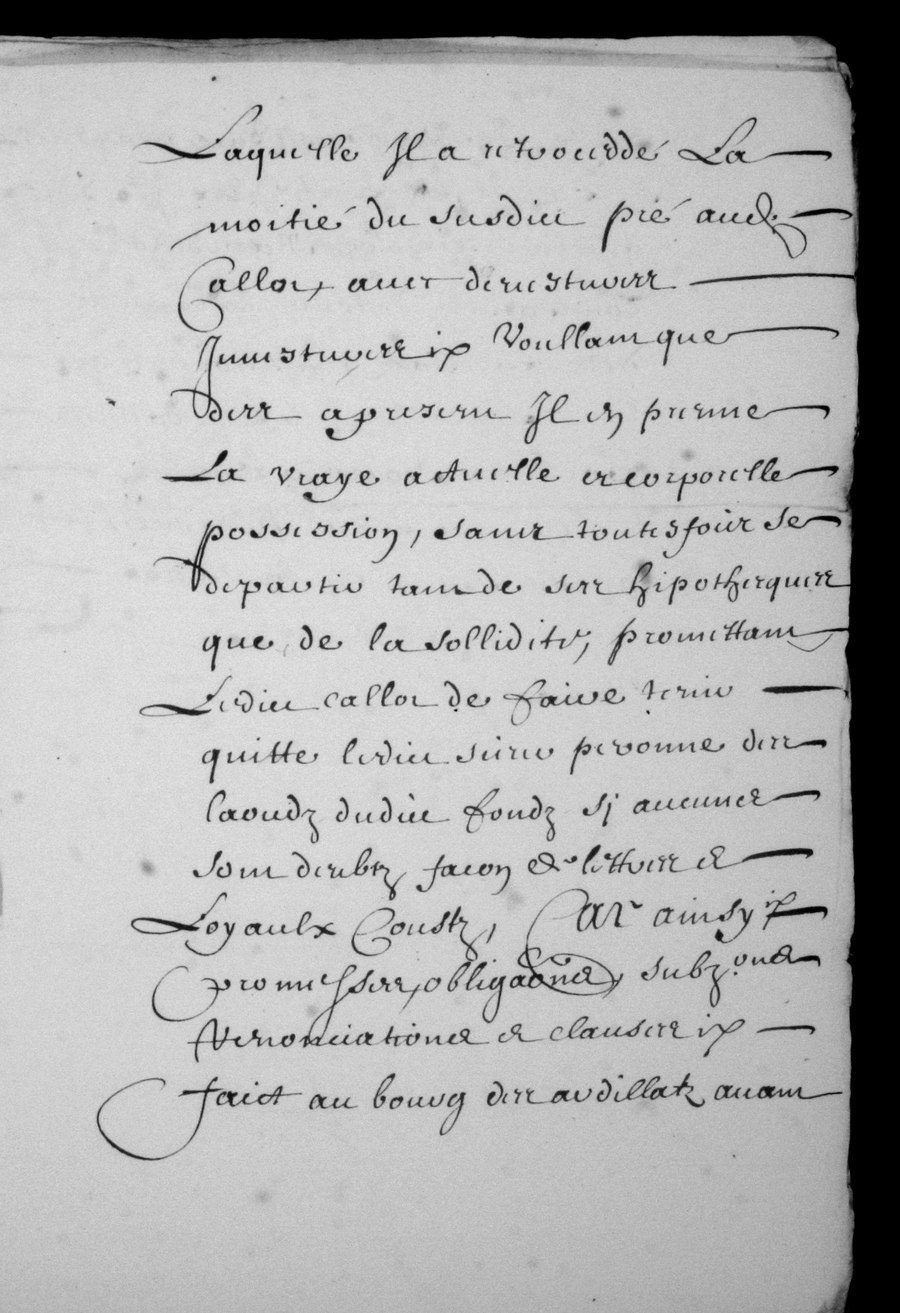 Laquelle Il a retroceddé La
moitié du susdict pré aud.
Callot, avec devestiture
Investiture &c Voullant que
des a present Il en prenne
La vraye actuelle et corporelle
possession, sans toutesfois se
departir tant de ses hipothecques
que de la sollidité, promettant
Ledict Callot de faire tenir
quitte ledict sieur peronne des
laoudz dudict fondz sj aucuns
sont deubtz, facon de lettres et
Loyaulx Coustz, Car ainsy &c
promesses, obligaõns, subz.ons
Renonciations et clauses &c
faict au bourg des ardillatz avant